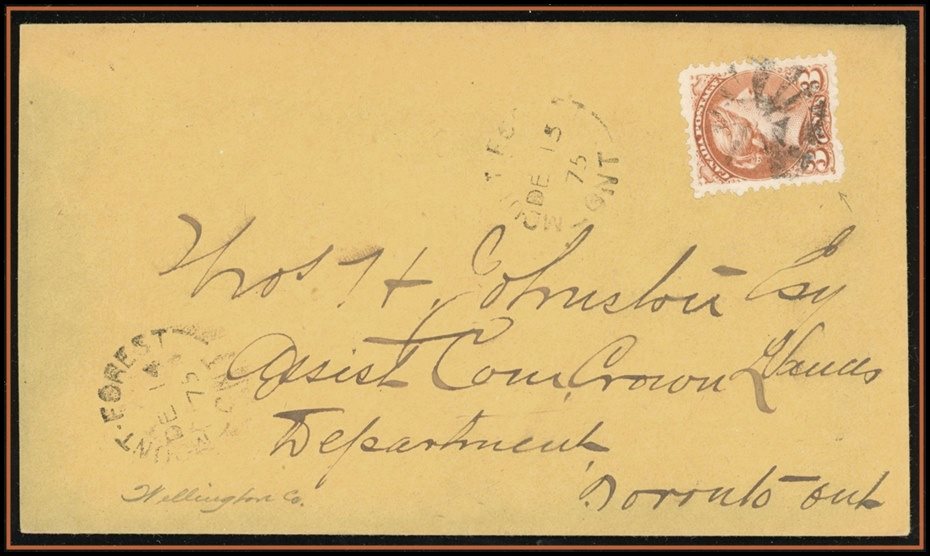 CANADA POSTAGE
3
3
MOUNT-FOREST ONT
DE 15
75
Thos H. Johnston Esq
Assist Com. Crown Lands
Department
Toronto Ont
MOUNT-FOREST
DE
75
Wellington Co.